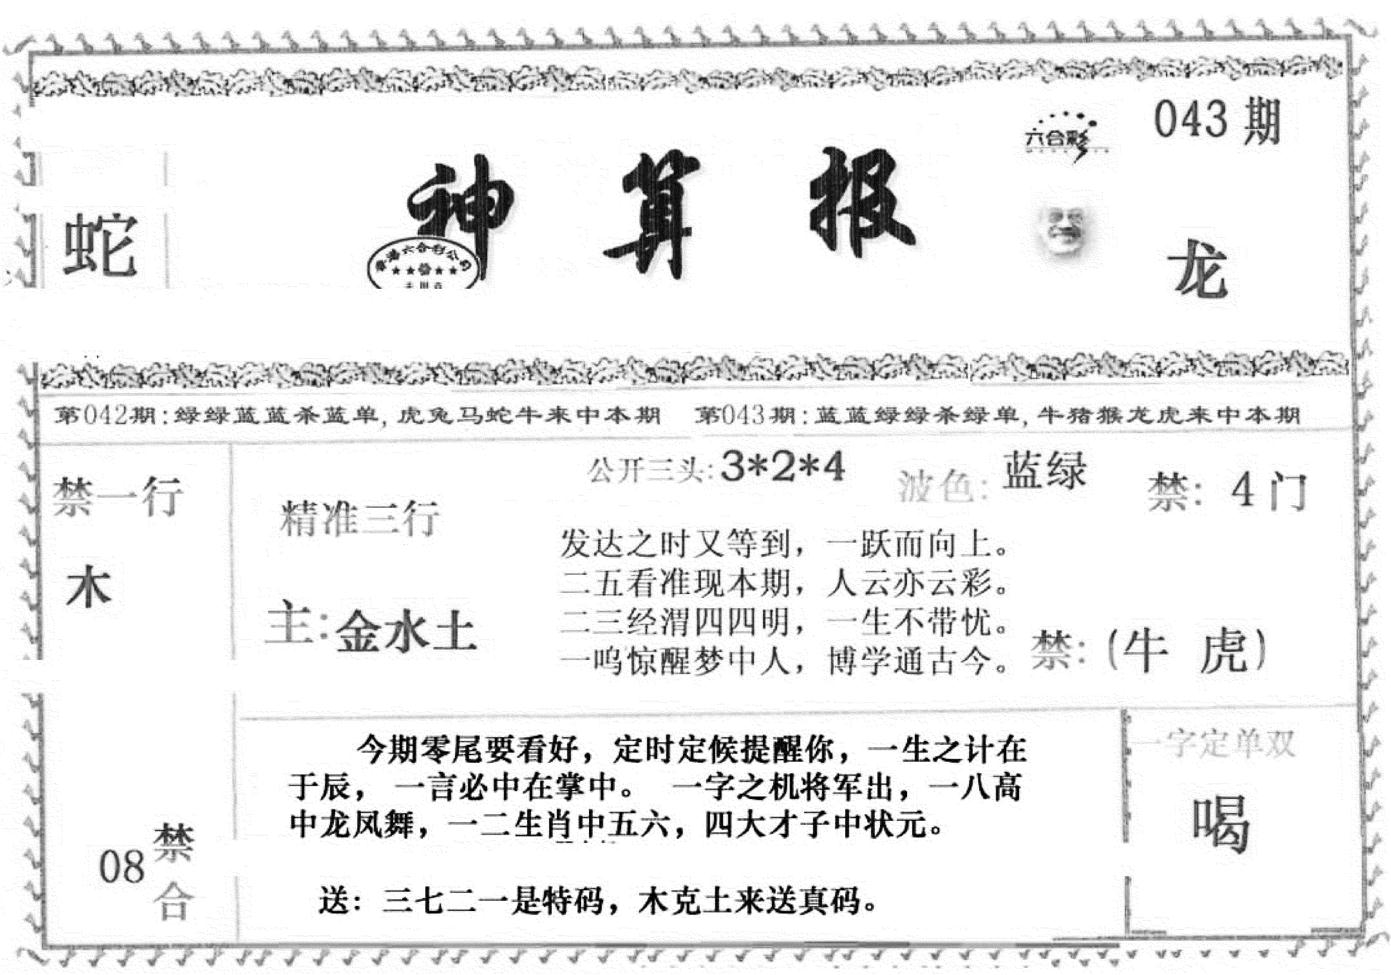 043期
六合彩
神算报
蛇
龙
香港六合彩公司
第042期:绿绿蓝蓝杀蓝单,虎兔马蛇牛来中本期 第043期:蓝蓝绿绿杀绿单,牛猪猴龙虎来中本期
公开三头:3*2*4 波色:蓝绿 禁:4门
禁一行
木
精准三行
主:金水土
发达之时又等到，一跃而向上。
二五看准现本期，人云亦云彩。
二三经渭四四明，一生不带忧。
一呜惊醒梦中人，博学通古今。
禁:(牛 虎)
今期零尾要看好，定时定候提醒你，一生之计在
于辰，一言必中在掌中。 一字之机将军出，一八高
中龙凤舞，一二生肖中五六，四大才子中状元。
送：三七二一是特码，木克土来送真码。
一字定单双
喝
08
禁
合